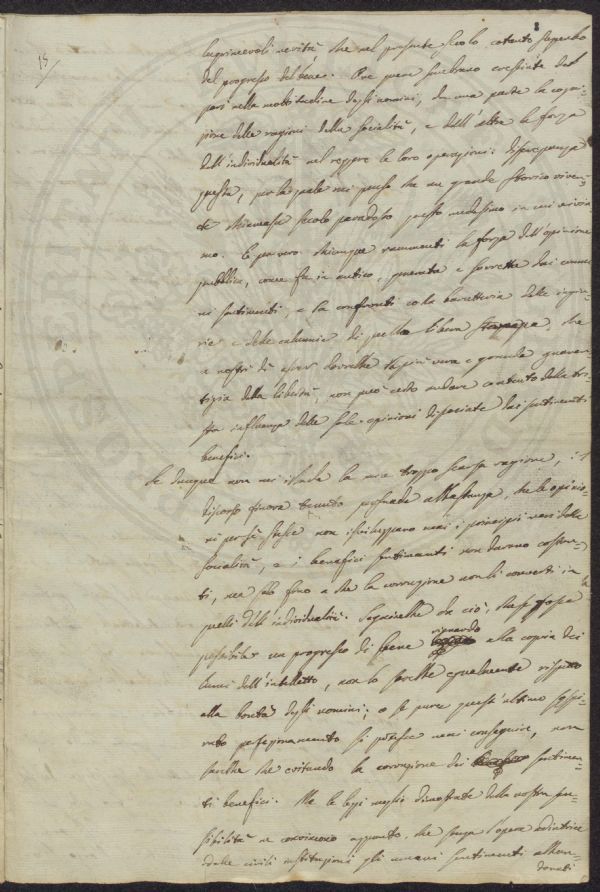 8
15
lusinghevoli verità che nel presente secolo, cotanto superbo
del progresso del bene. Ove pure sembrano cresciute del
pari nella moltitudine degli uomini, da una parte la cogni-
zione delle ragioni della socialità, e dall'altra la forza
dell'individualità nel reggere le loro operazioni: discrepanza
questa, per la quale mi penso che un grande storico viven-
te chiamasse secolo paradosso questo medesimo in cui vivia-
mo. E per vero chiunque rammenti la forza dell'opinione
pubblica, come fu in antico, generata e sorretta dai comu-
ni sentimenti, e la confronti colla baratteria delle ingiu-
rie e delle calunnie di quella libera stampa, che
a nostri dì esser dovrebbe la più vera e gran
tigia della libertà, non può certo andare contento della tri-
sta influenza delle sole opinioni dissociate dai sentimenti
benefici.
Se dunque non mi illude la mia troppo scarsa ragione, il
discorso finora tenuto persuade abbastanza, che le opinio-
ni per sé stesse non isviluppano mai i principii veri della
socialità, e i benefici sentimenti non durano costan-
ti, ma solo fino a che la corruzione non li converti in
quelli dell'individualità. Seguirebbe da ciò, che se fosse
possibile un progresso di bene riguardo alla copia dei
lumi dell'intelletto, non lo sarebbe egualmente rispetto
alla bontà degli uomini; o se pure quest'ultimo sospi-
rato perfezionamento si potesse mai conseguire, non
sarebbe che evitando la corruzione dei sentimen-
ti benefici. Ma le leggi meglio dimostrate della nostra sen-
sibilità ne convincono appunto, che senza l'opera adiutrice
delle civili instituzioni gli umani sentimenti abban-
donati